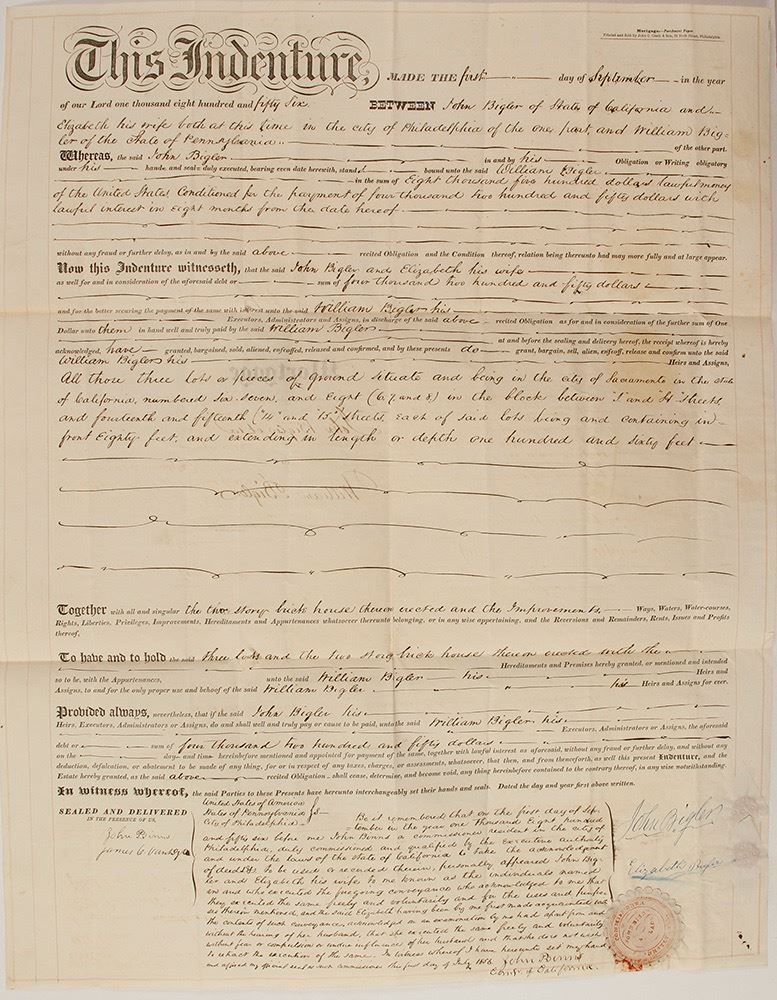 Mortgage—Parchment Paper.
This Indenture, MADE THE first day of September in the year
of our Lord one thousand eight hundred and fifty six BETWEEN John Bigler of State of California and
Elizabeth his wife both at this time in the city of Philadelphia of the one part, and William Big-
ler of the State of Pennsylvania of the other part.
Whereas, the said John Bigler in and by his Obligation or Writing obligatory
under his hand and seal duly executed, bearing even date herewith, stand bound unto the said William Bigler
in the sum of Eight thousand five hundred dollars lawful money
of the United States Conditioned for the payment of four thousand two hundred and fifty dollars with
lawful interest in eight months from the date hereof.
without any fraud or further delay, as in and by the said above recited Obligation and the Condition thereof, relation being thereunto had may more fully and at large appear.
Now this Indenture witnesseth, that the said John Bigler and Elizabeth his wife
as well for and in consideration of the aforesaid debt or sum of four thousand two hundred and fifty dollars
and for the better securing the payment of the same with interest unto the said William Bigler his
Executors, Administrators and Assigns, in discharge of the said above recited Obligation as for and in consideration of the further sum of One
Dollar unto them in hand well and truly paid by the said William Bigler
at and before the sealing and delivery hereof, the receipt whereof is hereby
acknowledged, have granted, bargained, sold, aliened, enfeoffed, released and confirmed, and by these presents do grant, bargain, sell, alien, enfeoff, release and confirm unto the said
William Bigler his Heirs and Assigns,
All those three lots or pieces of Ground situate and being in the city of Sacramento in the state
of California, numbered Six, Seven, and Eight (6, 7, and 8,) in the block between "I" and "H" streets
and fourteenth and fifteenth ("14" and "15") streets, each of said lots being and containing in
front Eighty feet, and extending in length or depth one hundred and sixty feet
Together with all and singular the two story brick house thereon erected and the Improvements, Ways, Waters, Water-courses,
Rights, Liberties, Privileges, Improvements, Hereditaments and Appurtenances whatsoever thereunto belonging, or in any wise appertaining, and the Reversions and Remainders, Rents, Issues and Profits
thereof,
To have and to hold the said three lots and the two story brick house thereon erected with the
Hereditaments and Premises hereby granted, or mentioned and intended
so to be, with the Appurtenances, unto the said William Bigler his Heirs and
Assigns, to and for the only proper use and behoof of the said William Bigler his Heirs and Assigns for ever.
Provided always, nevertheless, that if the said John Bigler his
Heirs, Executors, Administrators or Assigns, do and shall well and truly pay or cause to be paid, unto the said William Bigler, his
Executors, Administrators or Assigns, the aforesaid
debt or sum of four thousand two hundred and fifty dollars
on the day and time hereinbefore mentioned and appointed for payment of the same, together with lawful interest as aforesaid, without any fraud or further delay, and without any
deduction, defalcation, or abatement to be made of any thing, for or in respect of any taxes, charges, or assessments, whatsoever, that then, and from thenceforth, as well this present Indenture, and the
Estate hereby granted, as the said above recited Obligation shall cease, determine, and become void, any thing hereinbefore contained to the contrary thereof, in any wise notwithstanding.
In witness whereof, the said Parties to these Presents have hereunto interchangeably set their hands and seals. Dated the day and year first above written.
SEALED AND DELIVERED
IN THE PRESENCE OF US,
John Binns
United States of America
States of Pennsylvania
City of Philadelphia
Be it remembered that on the first day of Sep-
tember in the year one Thousand Eight hundred
and fifty six before me John Binns a commissioner resident in the city of
Philadelphia, duly commissioned and qualified by the Executive Authority
and under the laws of the State of California to take the acknowledgment
of deeds &c to be used or recorded therein, personally appeared John Big-
ler and Elizabeth his wife to me known as the individuals named
in and who executed the foregoing conveyance who acknowledged to me that
they executed the same freely and voluntarily and for the uses and purpo-
ses therein mentioned, and the said Elizabeth having been by me first made acquainted with
the contents of such conveyance, acknowledged on an examination by me had apart from and
without the hearing of her husband, that she executed the same freely and voluntarily
without fear or compulsion or undue influences of her husband and that she do not wish
to retract the execution of the same. In witness whereof I have hereunto set my hand
and affixed my official seal as such commissioner this first day of 1856. John Binns
Comr. of California.
John Bigler
Elizabeth Bigler